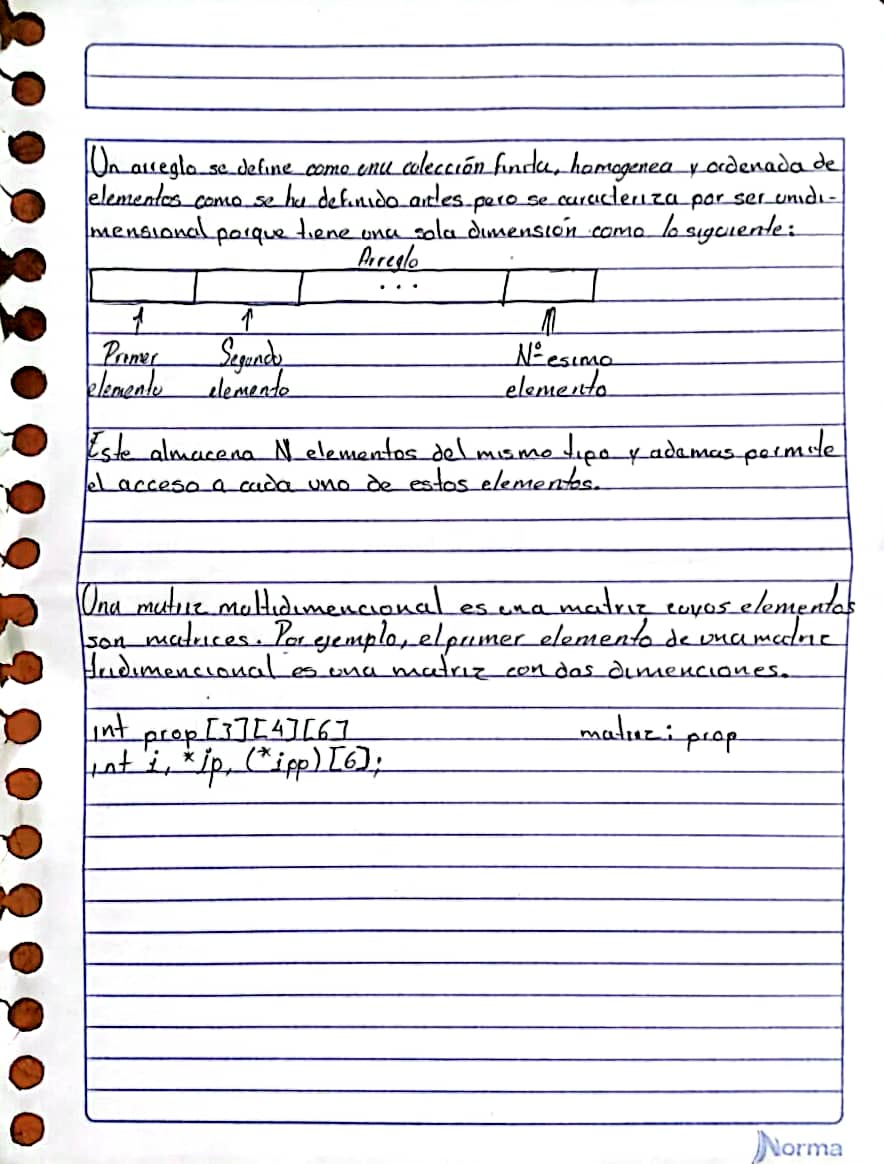 Un arreglo se define como una colección finita, homogenea y ordenada de
elementos como se ha definido antes pero se caracteriza por ser unidi-
mensional porque tiene una sola dimensión como lo siguiente:
Arreglo
...
Primer Segundo N° esimo
elemento elemento elemento
Este almacena N elementos del mismo tipo y ademas permite
el acceso a cada uno de estos elementos.
Una matriz multidimencional es una matriz cuyos elementos
son matrices. Por ejemplo, el primer elemento de una matriz
tridimencional es una matriz con dos dimenciones.
int prop[3][4][6] matriz: prop
int i, *ip, (*ipp)[6];
Norma